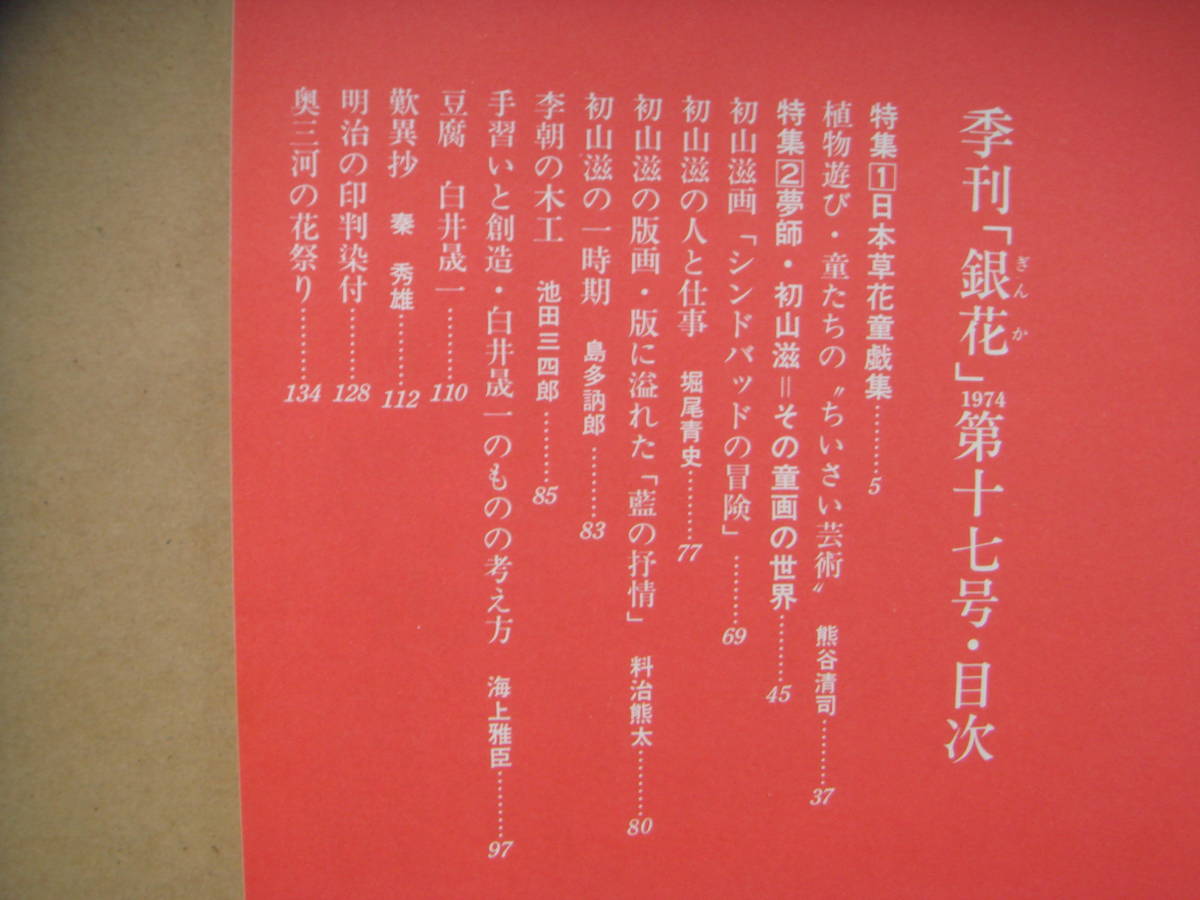 季刊「銀花」1974第十七号・目次
ぎんか
特集1日本草花童戯集………5
植物遊び・童たちの〝ちいさい芸術〟 熊谷清司………37
特集2夢師・初山滋＝その童画の世界………45
初山滋画「シンドバッドの冒険」………69
初山滋の人と仕事 堀尾青史………77
初山滋の版画・版に溢れた「藍の抒情」 料治熊太………80
初山滋の一時期 島多訥郎………83
李朝の木工 池田三四郎………85
手習いと創造・白井晟一のものの考え方 海上雅臣………97
豆腐 白井晟一………110
歎異抄 秦秀雄………112
明治の印判染付………128
奥三河の花祭り………134